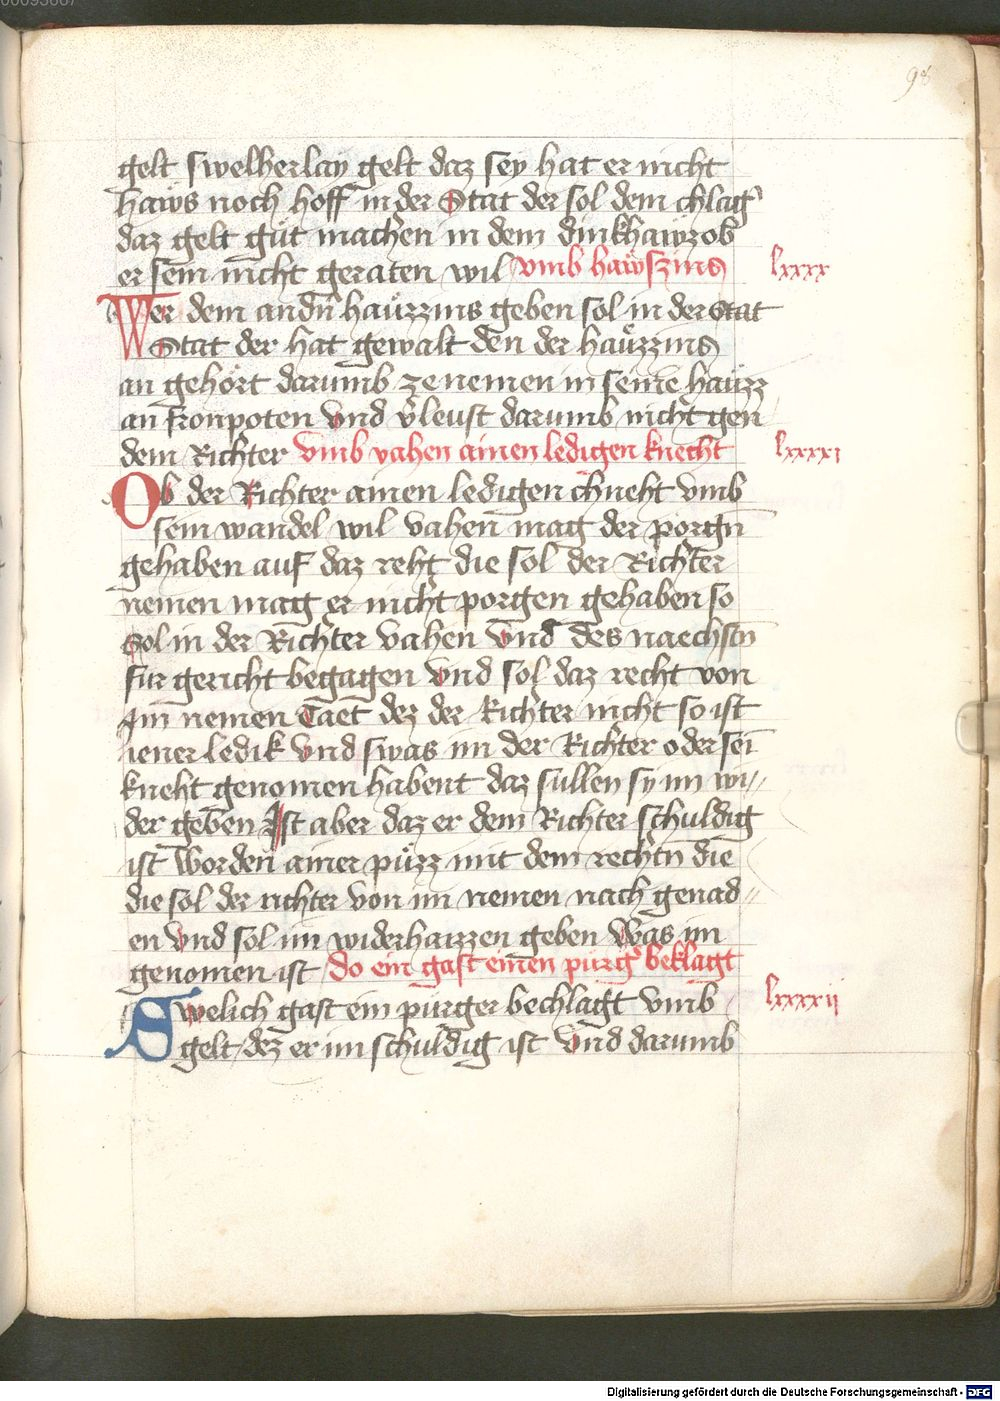 98
gelt swelherlay gelt daz sey hat er nicht
haws noch hoff in der Stat der sol dem chlag᾽
daz gelt güt machen in dem dinkhawz ob
er sein nicht geraten wil vmb hawszins lxxxx
Wer dem andn̄ haüzzins geben sol in der Stat
Stat der hat gewalt den der haüzzins
an gehört darumb ze nemen in seinē haüzz
an fronpoten vnd v᾽leust darumb nicht gen
dem Richter vmb vahen ainen ledigen knecht lxxxxi
Ob der Richter ainen ledigen chneht vmb
sein wandel wil vahen mag der porgn̄
gehaben auf daz reht die sol der Richter
nemen mag er nicht porgen gehaben so
Sol in der Richter vahen vnd des naechstn̄
für gericht begagen vnd sol daz recht von
Im nemen Taet dez der Richter nicht so ist
iener ledik vnd swas im der Richter oder sei
kneht genomen habent daz süllen sy im wi//
der geben Ist aber daz er dem Richter schuldig
ist worden ainer püzz mit dem rechtn̄ die
die sol der richter von im nemen nach genad//
en vnd sol im widerhaizzen geben Was im
genomen ist do ein gast einen purg᾽ beklagt
Swelich gast ein purger bechlagt vmb lxxxxii
gelt dez er im schuldig ist vnd darumb
Digitalisierung gefördert durch die Deutsche Forschungsgemeinschaft - DFG